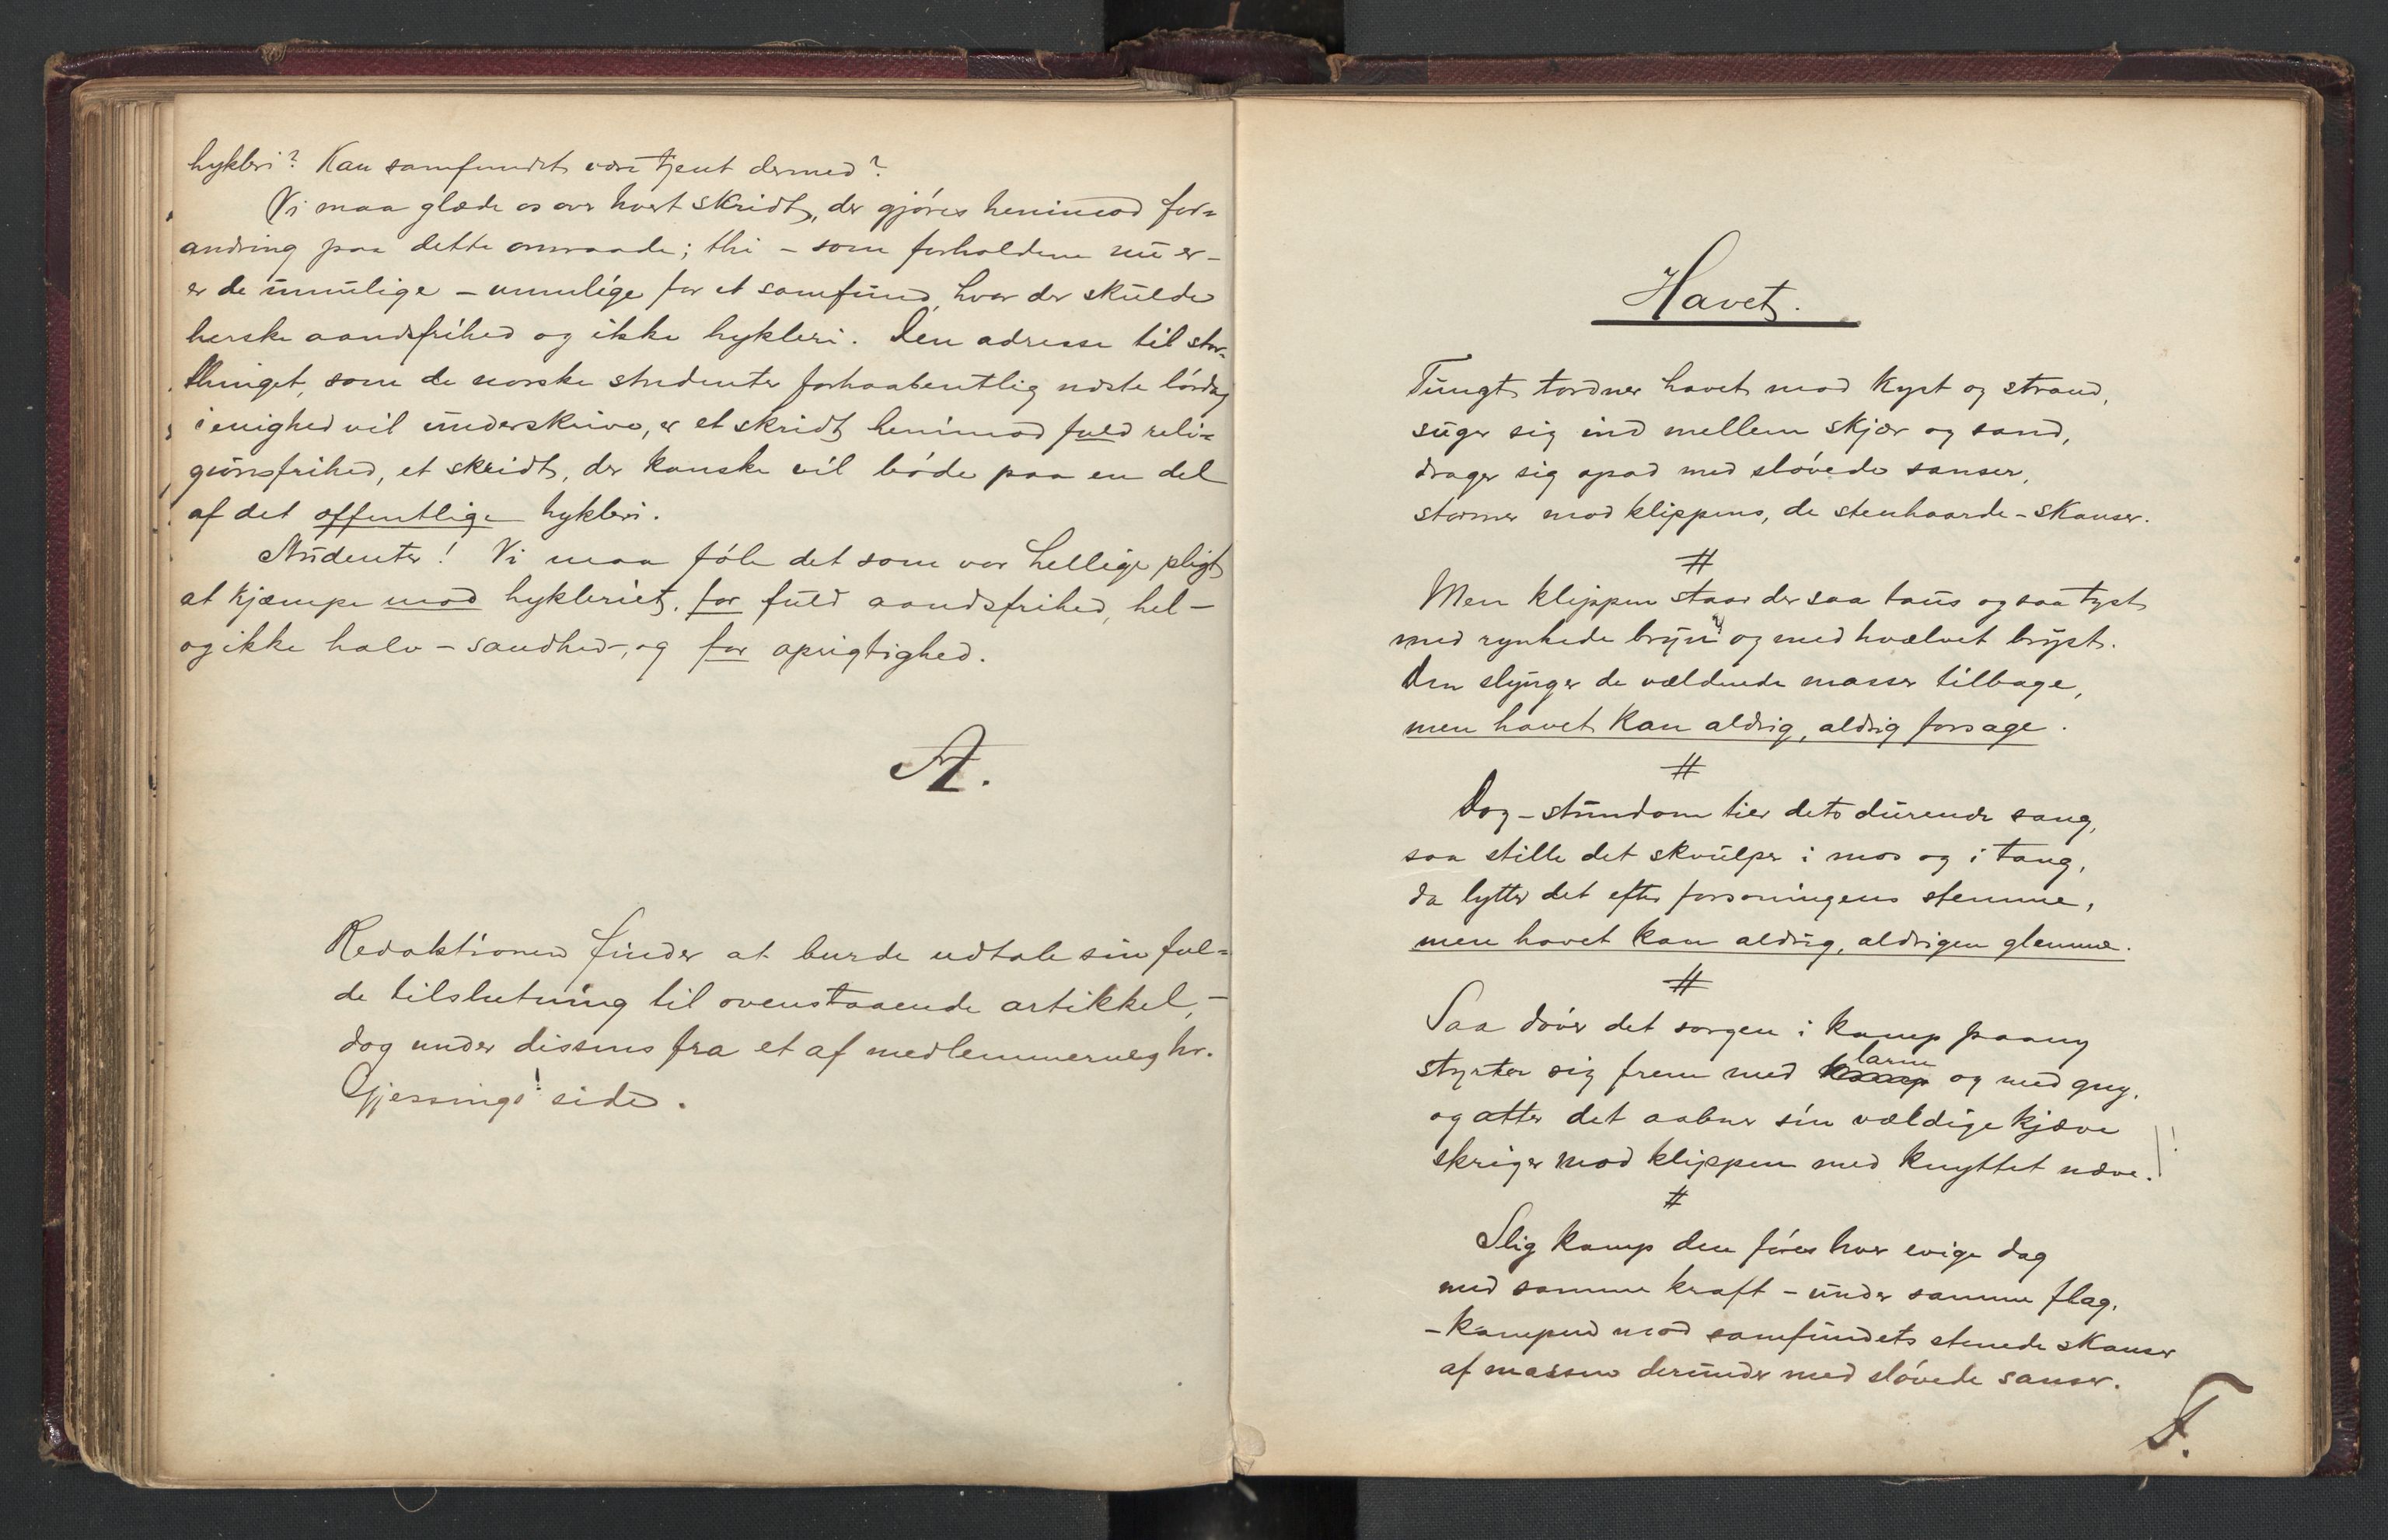 hykleri? Kan samfundet være tjent dermed?
Vi maa glæde os over hvert skridt, der gjöres henimod for=
andring paa dette omraade; thi – som forholdene nu er –
er de umulige – umulige for et samfund, hvor der skulde
herske aandsfrihed og ikke hykleri. Den adresse til stor=
thinget, som de norske studenter forhaabentlig næste lördag
i enighed vil underskrive, er et skridt henimod fuld reli=
gionsfrihed, et skridt, der kanske vil böde paa en del
af det offentlige hykleri.
Studenter! Vi maa föle det som vor hellige pligt
at kjæmpe mod hykleriet, for fuld aandsfrihed, hel –
og ikke halv – sandhed –, og for oprigtighed.
A.
Redaktionen finder at burde udtale sin ful=
de tilslutning til ovenstaaende artikkel, –
dog under dissens fra et af medlemmernes hr.
Gjessings! side.
Havet.
Tungt tordner havet mod kyst og strand,
suger sig ind mellem skjær og sand,
drager sig opad med slövede sanser,
stormer mod klippens, de stenhaarde – skanser.
#
Men klippen staar der saa taus og saa tyst
med rynkede bryn og med hvælvet bryst.
Den slynger de vældende masser tilbage,
men havet kan aldrig, aldrig forsage.
#
Dog – stundom tier dets durende sang,
saa stille det skvulper i mos og i tang,
da lytter det efter forsoningens stemme,
men havet kan aldrig, aldrigen glemme.
#
Saa döver det sorgen i kamp paany
styrter sig frem med larm og med gny,
og atter det aabner sin vældige kjæve
skriger mod klippen med knyttet næve.!
#
Slig kamp den föres hver evige dag
med samme kraft – under samme flag,
– kampen mod samfundets stenede skanser
af massen derunder med slövede sanser.
F.